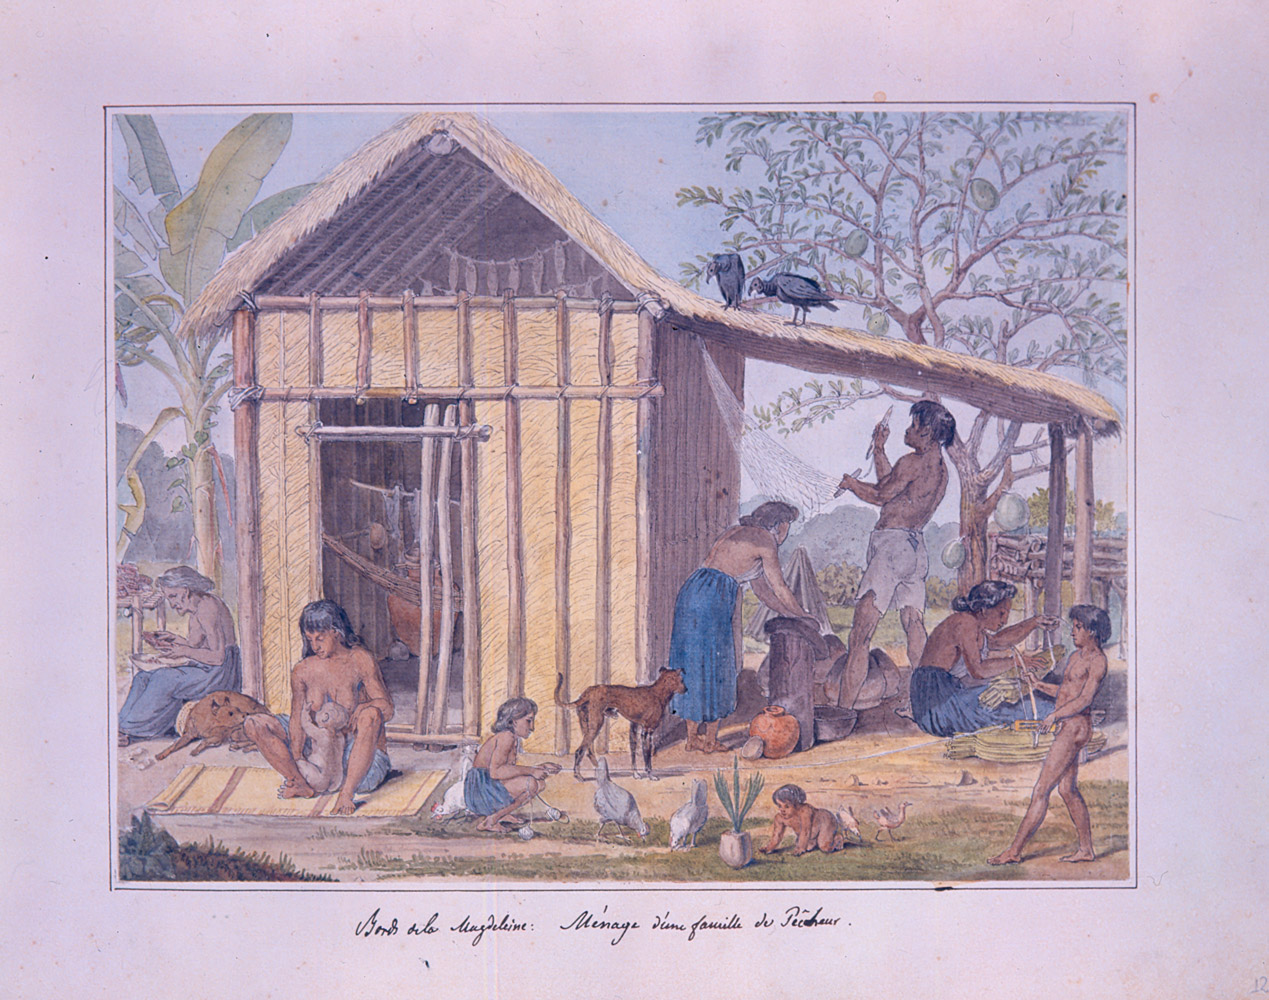 Bords de la Magdeleine: Ménage d'une famille de Pêcheur.
12